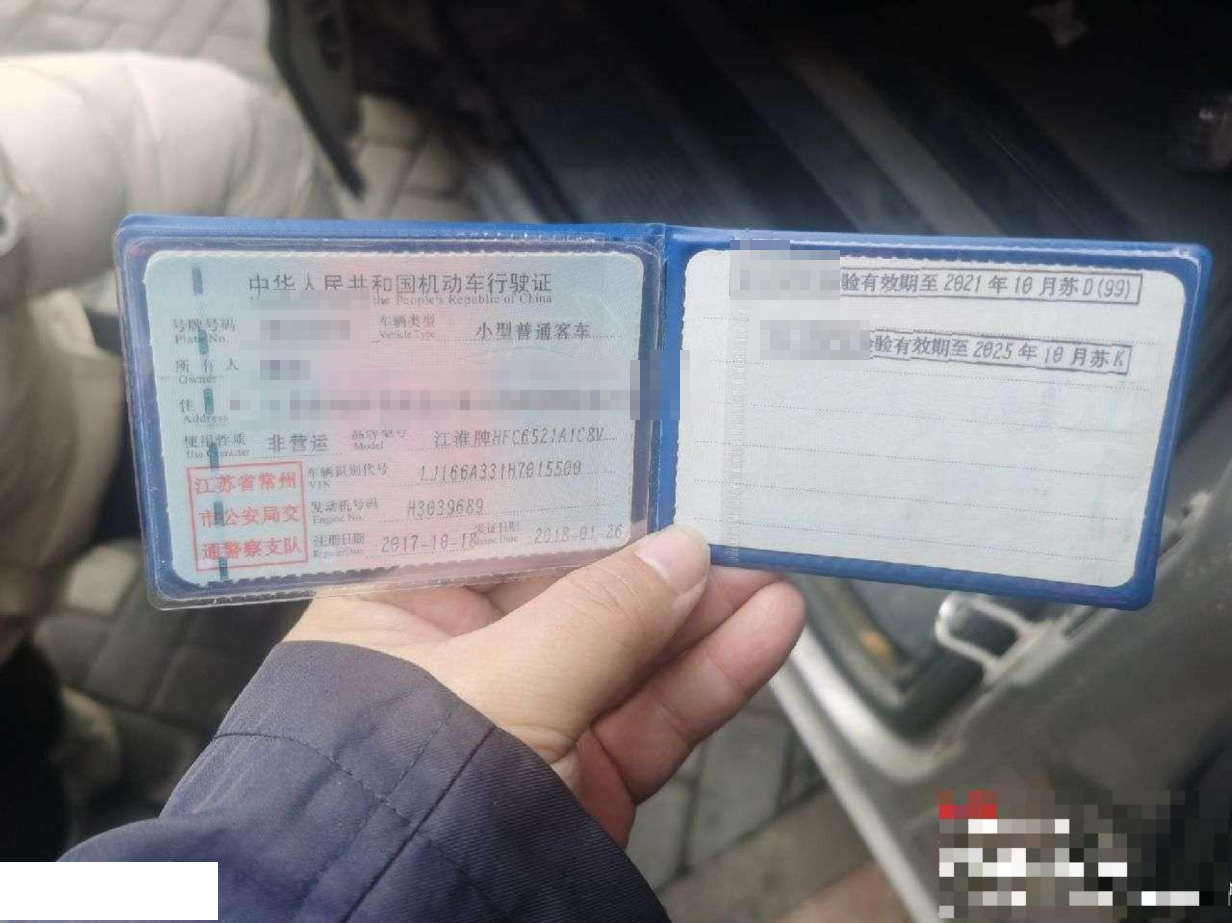 中华人民共和国机动车行驶证
the People's Republic of China
号牌号码
Plate No.
车辆类型 小型普通客车
Vehicle Type
所有人
Owner
住
Address
使用性质 非营运 品牌型号 江淮牌HFC6521A1C8V
Use Character Model
江苏省常州
市公安局交
通警察支队
车辆识别代号 LJ166A331H7015500
VIN
发动机号码 H3039689
Engine No.
注册日期 2017-10-18 发证日期 2018-01-26
Register Date Issue Date
验有效期至 2021 年 10 月苏D(99)
验有效期至 2025 年 10 月苏K